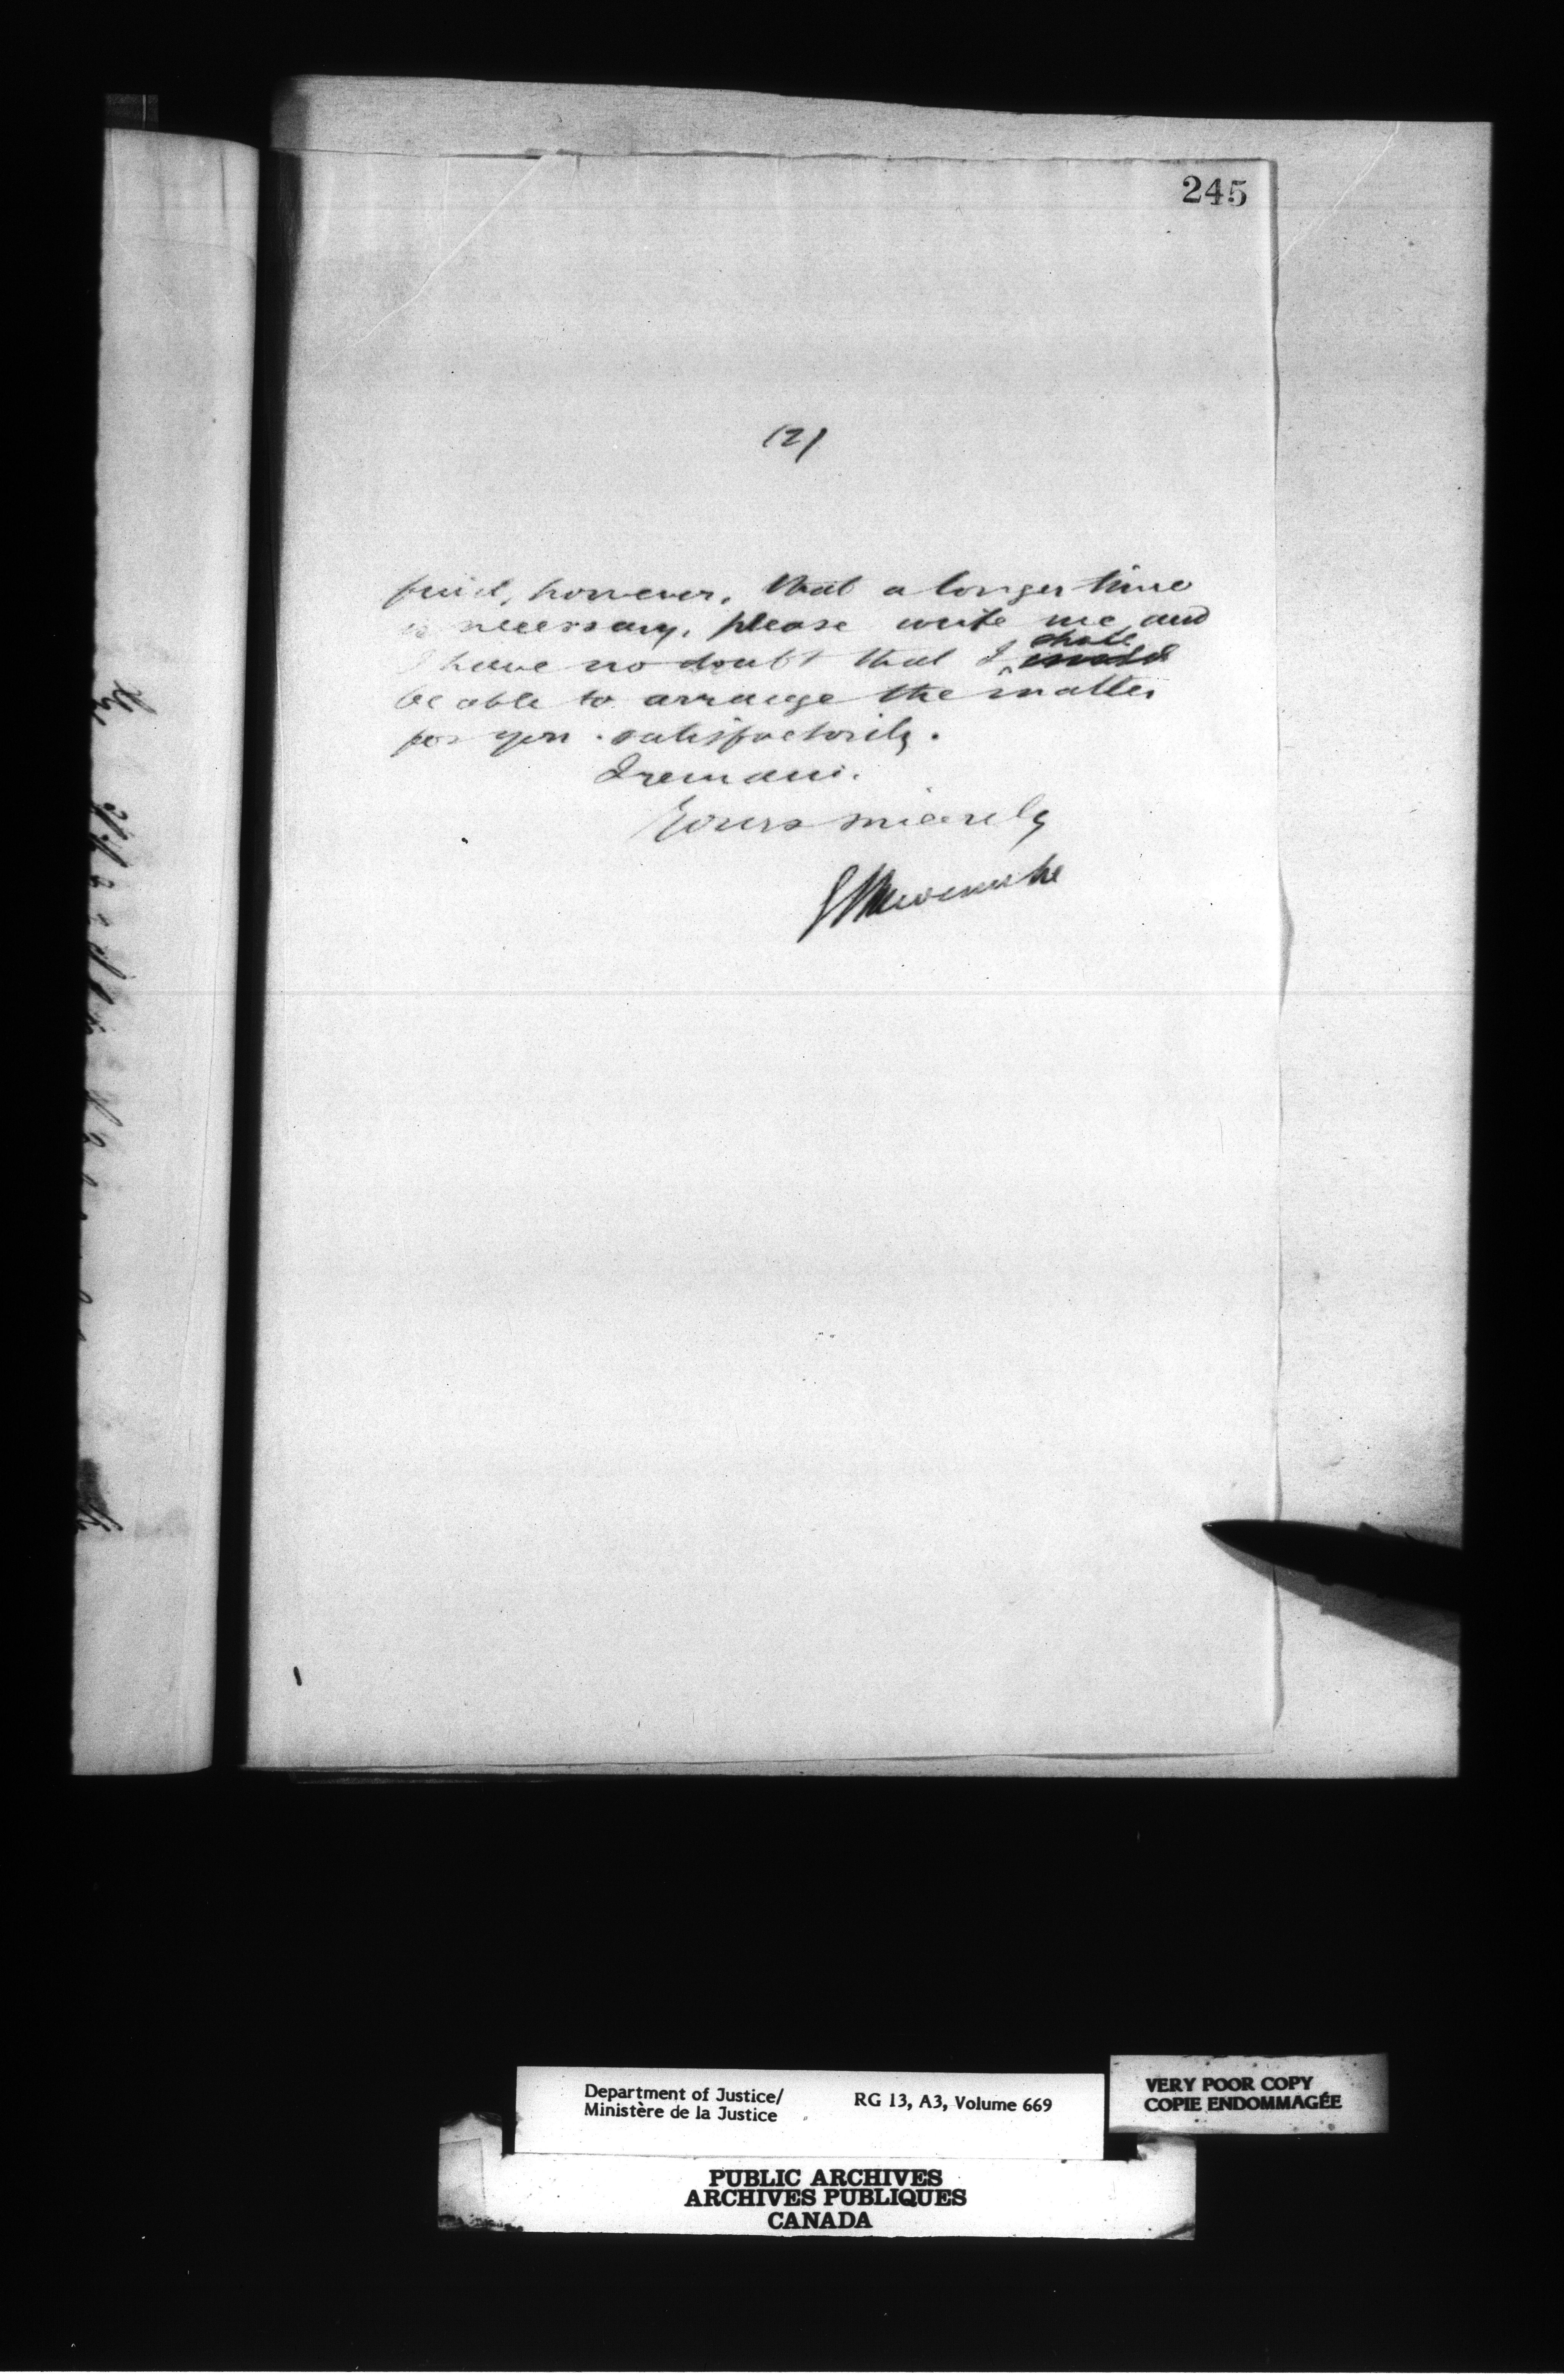 245
(2)
find, however, that a longer time
is necessary, please write me and
I have no doubt that I shall
be able to arrange the matter
for you satisfactorily.
I remain.
Yours sincerely
Department of Justice/
Ministère de la Justice
RG 13, A3, Volume 669
VERY POOR COPY
COPIE ENDOMMAGÉE
PUBLIC ARCHIVES
ARCHIVES PUBLIQUES
CANADA